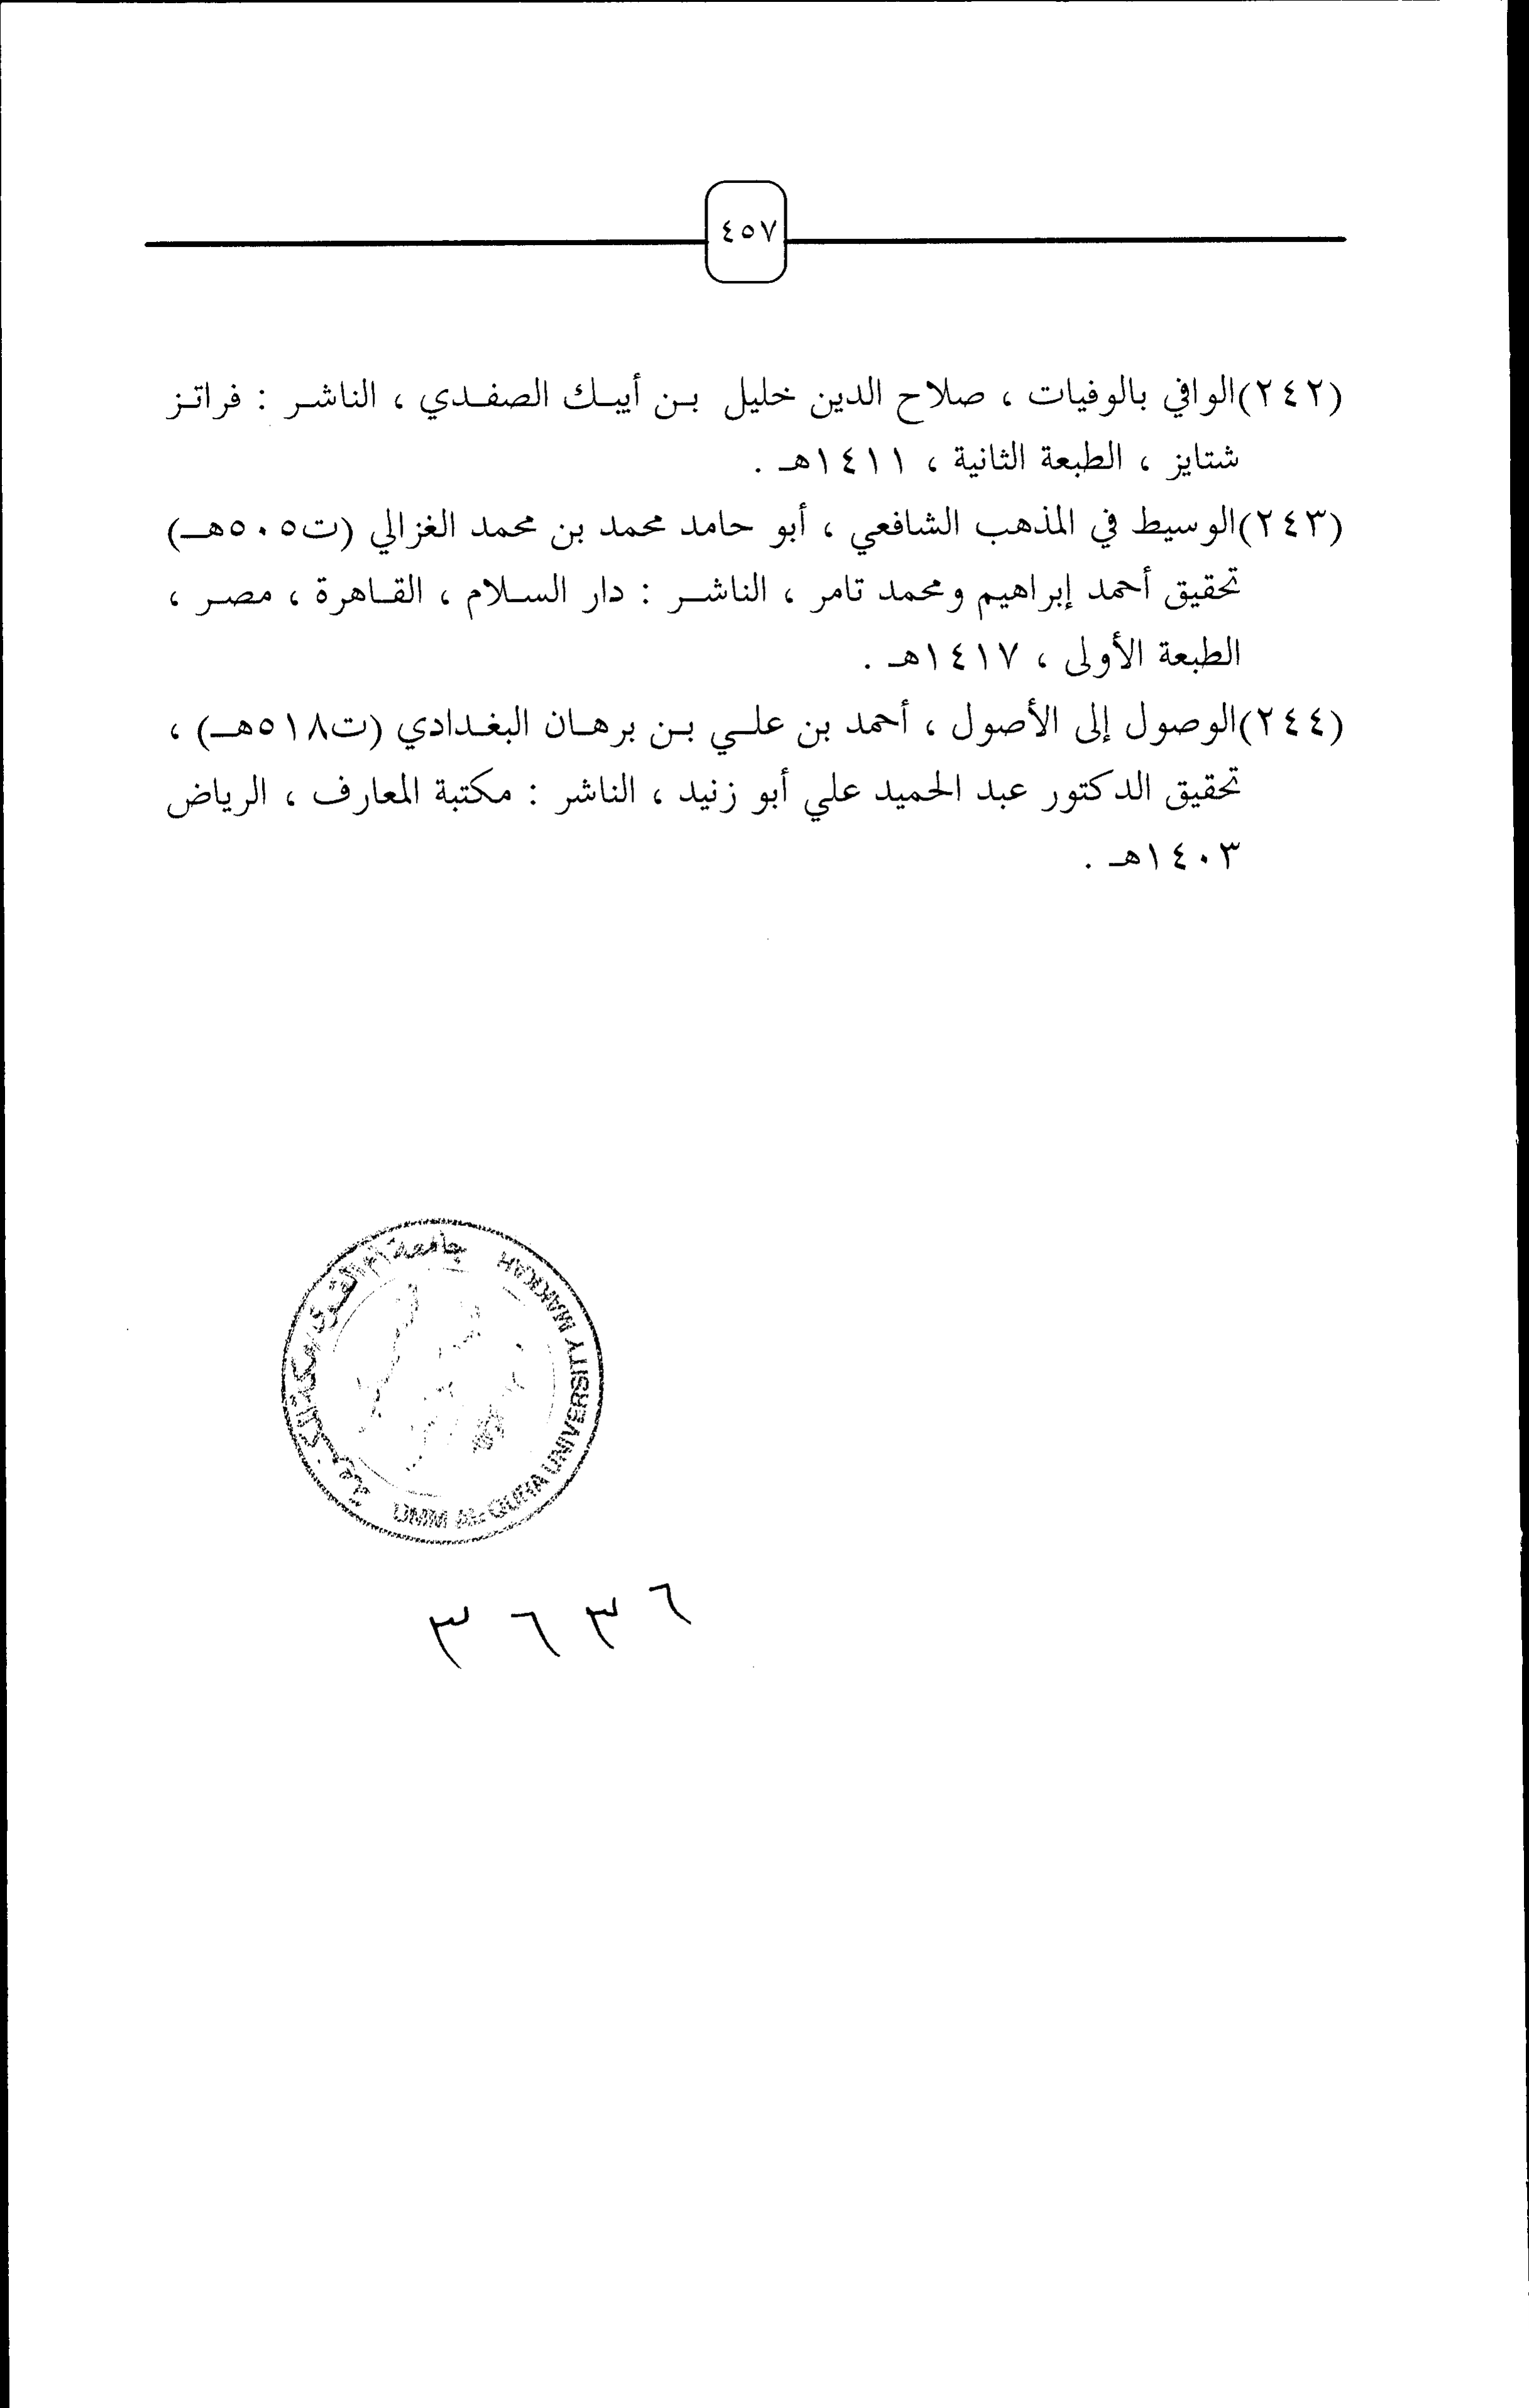 ٤٥٧
(٢٤٢)الوافي بالوفيات ، صلاح الدين خليل بن أيبك الصفدي ، الناشر : فراتز
شتايز ، الطبعة الثانية ، ١٤١١هـ .
(٢٤٣)الوسيط في المذهب الشافعي ، أبو حامد محمد بن محمد الغزالي (ت٥٠٥هـ)
تحقيق أحمد إبراهيم ومحمد تامر ، الناشر : دار السلام ، القاهرة ، مصر ،
الطبعة الأولى ، ١٤١٧هـ .
(٢٤٤)الوصول إلى الأصول ، أحمد بن علي بن برهان البغدادي (ت٥١٨هـ) ،
تحقيق الدكتور عبد الحميد علي أبو زنيد ، الناشر : مكتبة المعارف ، الرياض
١٤٠٣هـ .
جامعة أم القرى مكة المكرمة
UMM AL-QURA UNIVERSITY MAKKAH
٣٦٣٦